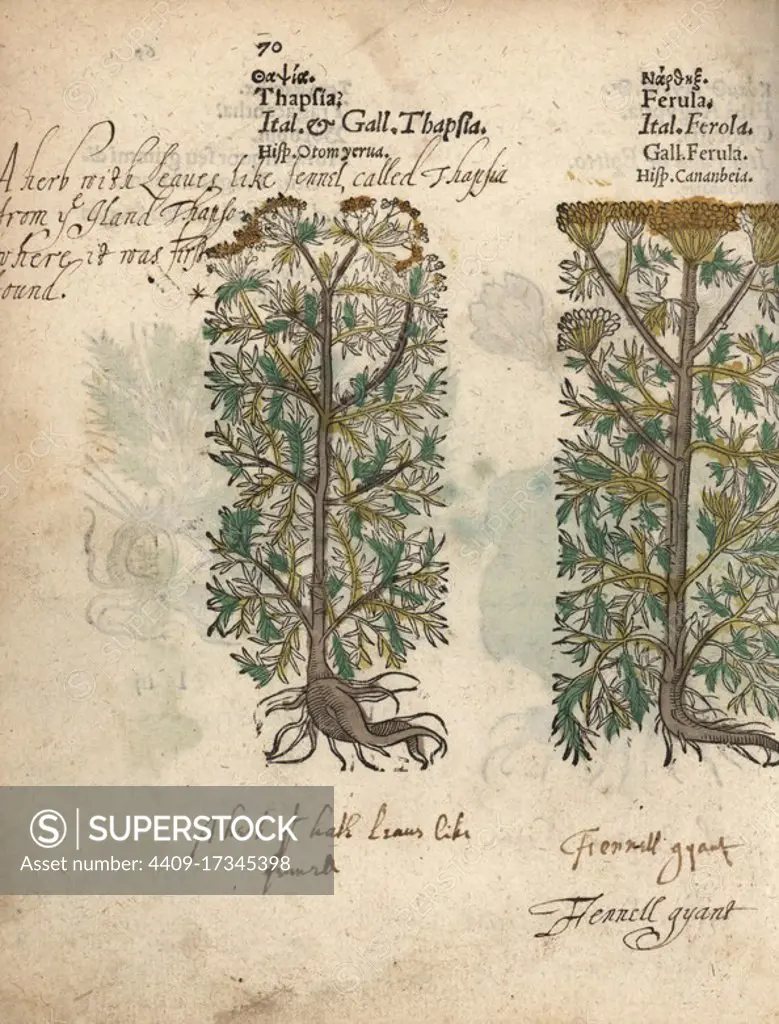 70
Θαψία.
Thapſia;
Ital. & Gall. Thapſia.
Hiſp. Otom yerua.
Νάρθηξ.
Ferula.
Ital. Ferola.
Gall. Ferula.
Hiſp. Cananbeia.
A herb with Leaves like fennel called Thapsia
from yᵉ Iland Thapso
where it was first
found.
hath leaus like
Fennell gyant
Fennell gyant
SUPERSTOCK
Asset number: 4409-17345398